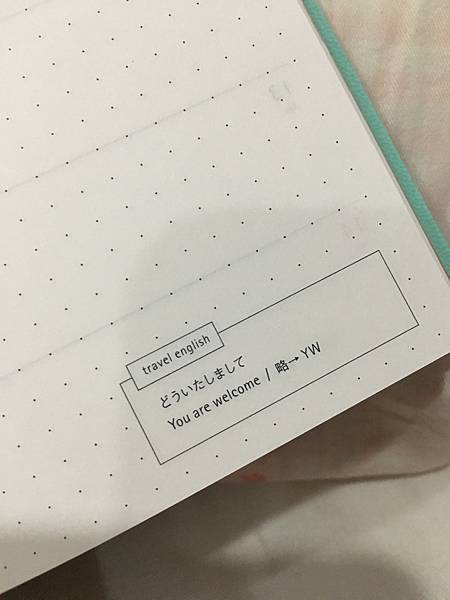 travel english
どういたしまして
You are welcome / 略→ YW